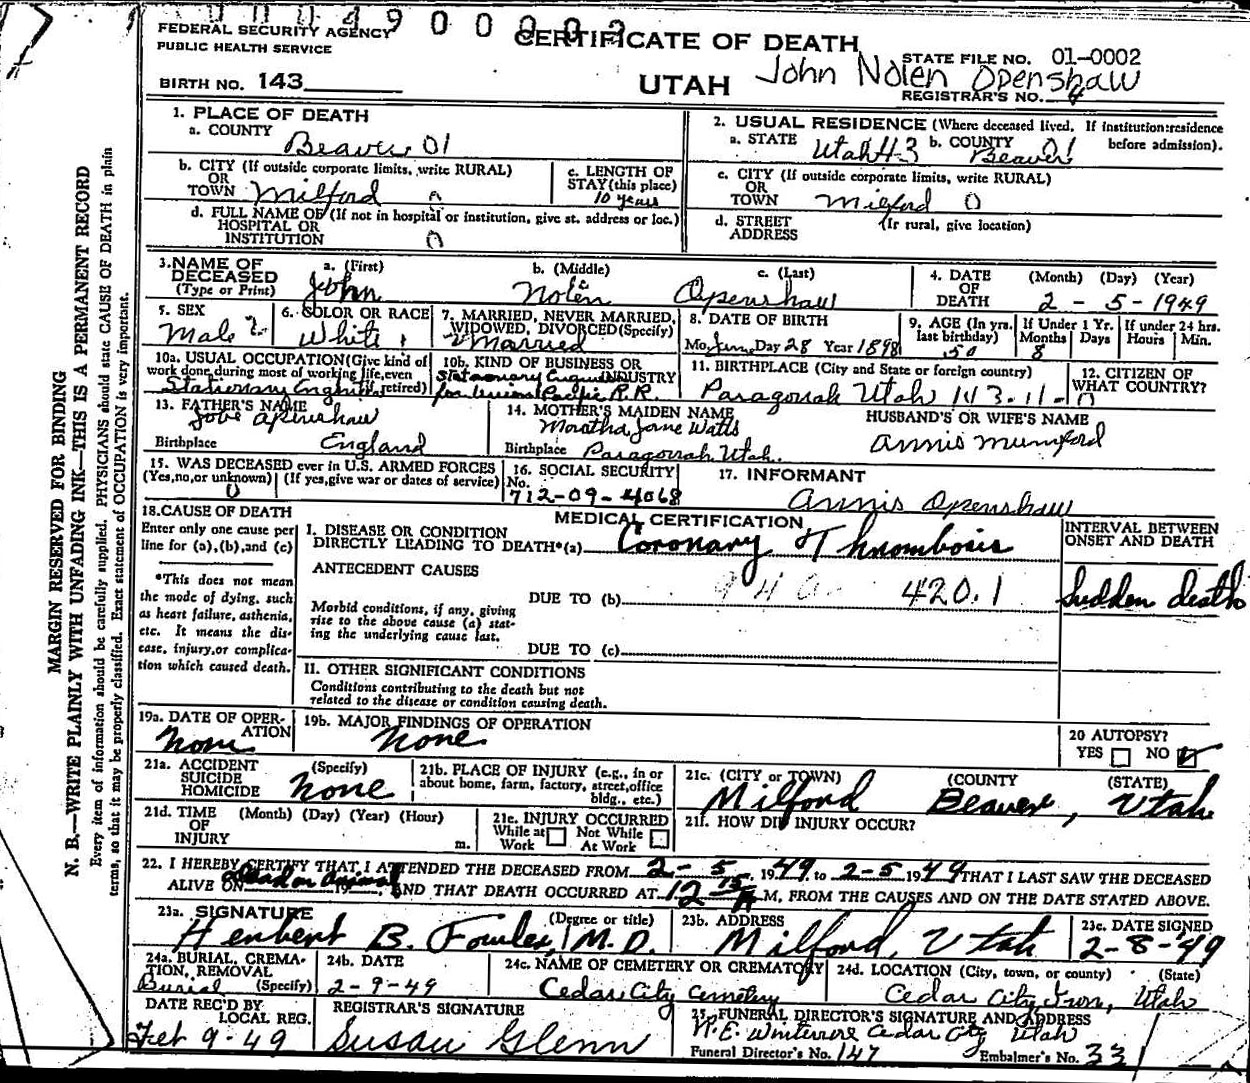 0 0 0 4 9 0 0 0 0 2
FEDERAL SECURITY AGENCY
PUBLIC HEALTH SERVICE
CERTIFICATE OF DEATH
STATE FILE NO. 01-0002
BIRTH NO. 143
UTAH
John Nolen Openshaw
REGISTRAR'S NO. 4
1. PLACE OF DEATH
a. COUNTY
Beaver 01
2. USUAL RESIDENCE (Where deceased lived. If institution:residence before admission).
a. STATE Utah 43 b. COUNTY Beaver 01
b. CITY (If outside corporate limits, write RURAL)
OR
TOWN Milford 0
c. LENGTH OF
STAY (this place)
10 years
c. CITY (If outside corporate limits, write RURAL)
OR
TOWN Milford 0
d. FULL NAME OF (If not in hospital or institution, give st. address or loc.)
HOSPITAL OR
INSTITUTION 0
d. STREET (If rural, give location)
ADDRESS
3. NAME OF
DECEASED
(Type or Print)
a. (First) John
b. (Middle) Nolen
c. (Last) Openshaw
4. DATE
OF
DEATH
(Month) (Day) (Year)
2 - 5 - 1949
5. SEX
Male
6. COLOR OR RACE
White
7. MARRIED, NEVER MARRIED,
WIDOWED, DIVORCED (Specify)
Married
8. DATE OF BIRTH
Mo. June Day 28 Year 1898
9. AGE (In yrs.
last birthday)
50
If Under 1 Yr.
Months Days
8
If under 24 hrs.
Hours Min.
10a. USUAL OCCUPATION (Give kind of
work done during most of working life, even
if retired)
Stationary Engineer
10b. KIND OF BUSINESS OR
INDUSTRY
Stationary Engineer
for Union Pacific R.R.
11. BIRTHPLACE (City and State or foreign country)
Paragonah Utah 143-11-
12. CITIZEN OF
WHAT COUNTRY?
0
13. FATHER'S NAME
Jobe Openshaw
Birthplace England
14. MOTHER'S MAIDEN NAME
Martha Jane Watts
Birthplace Paragonah Utah.
HUSBAND'S OR WIFE'S NAME
Annis Mumford
15. WAS DECEASED ever in U.S. ARMED FORCES
(Yes, no, or unknown) (If yes, give war or dates of service)
0
16. SOCIAL SECURITY
No.
712-09-4068
17. INFORMANT
Annis Openshaw
18. CAUSE OF DEATH
Enter only one cause per
line for (a), (b), and (c)
*This does not mean
the mode of dying, such
as heart failure, asthenia,
etc. It means the dis-
ease, injury, or complica-
tion which caused death.
MEDICAL CERTIFICATION
I. DISEASE OR CONDITION
DIRECTLY LEADING TO DEATH*(a) Coronary Thrombosis
ANTECEDENT CAUSES
DUE TO (b) 420.1
Morbid conditions, if any, giving
rise to the above cause (a) stat-
ing the underlying cause last.
DUE TO (c)
II. OTHER SIGNIFICANT CONDITIONS
Conditions contributing to the death but not
related to the disease or condition causing death.
INTERVAL BETWEEN
ONSET AND DEATH
Sudden death
19a. DATE OF OPER-
ATION
None
19b. MAJOR FINDINGS OF OPERATION
None
20 AUTOPSY?
YES NO
21a. ACCIDENT
SUICIDE
HOMICIDE
(Specify)
None
21b. PLACE OF INJURY (e.g., in or
about home, farm, factory, street, office
bldg., etc.)
21c. (CITY or TOWN) (COUNTY (STATE)
Milford Beaver, Utah
21d. TIME (Month) (Day) (Year) (Hour)
OF
INJURY m.
21e. INJURY OCCURRED
While at Work Not While At Work
21f. HOW DID INJURY OCCUR?
22. I HEREBY CERTIFY THAT I ATTENDED THE DECEASED FROM 2-5, 1949, to 2-5 1949 THAT I LAST SAW THE DECEASED
ALIVE ON Dead on Arrival AND THAT DEATH OCCURRED AT 12 15 A M, FROM THE CAUSES AND ON THE DATE STATED ABOVE.
23a. SIGNATURE (Degree or title)
Herbert B. Fowler, M.D.
23b. ADDRESS
Milford, Utah
23c. DATE SIGNED
2-8-49
24a. BURIAL, CREMA-
TION, REMOVAL
(Specify)
Burial
24b. DATE
2-9-49
24c. NAME OF CEMETERY OR CREMATORY
Cedar City Cemetery
24d. LOCATION (City, town, or county) (State)
Cedar City Iron, Utah
DATE REC'D BY
LOCAL REG.
Feb 9-49
REGISTRAR'S SIGNATURE
Susan Glenn
25. FUNERAL DIRECTOR'S SIGNATURE AND ADDRESS
Cedar City Utah
Funeral Director's No. 147 Embalmer's No. 331
MARGIN RESERVED FOR BINDING
N. B.—WRITE PLAINLY WITH UNFADING INK—THIS IS A PERMANENT RECORD
Every item of information should be carefully supplied. PHYSICIANS should state CAUSE OF DEATH in plain
terms, so that it may be properly classified. Exact statement of OCCUPATION is very important.